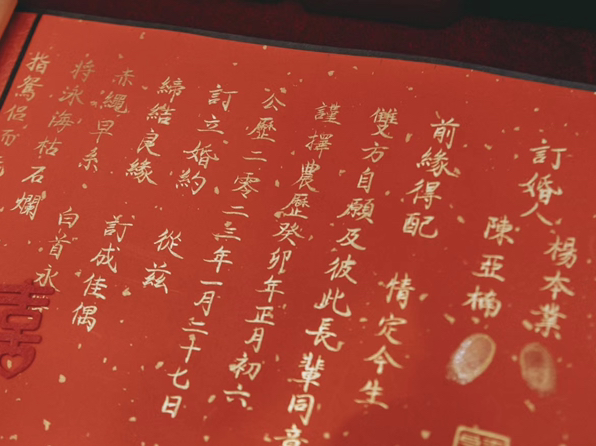 訂婚人 楊本業
陳亞楠
前緣得配 情定今生
雙方自願及彼此長輩同意
謹擇農歷癸卯年正月初六
公歷二零二三年一月二十七日
訂立婚約
締結良緣 從茲
赤縄早系 訂成佳偶
將泳海枯石爛 白首永
指鴛侶而
囍